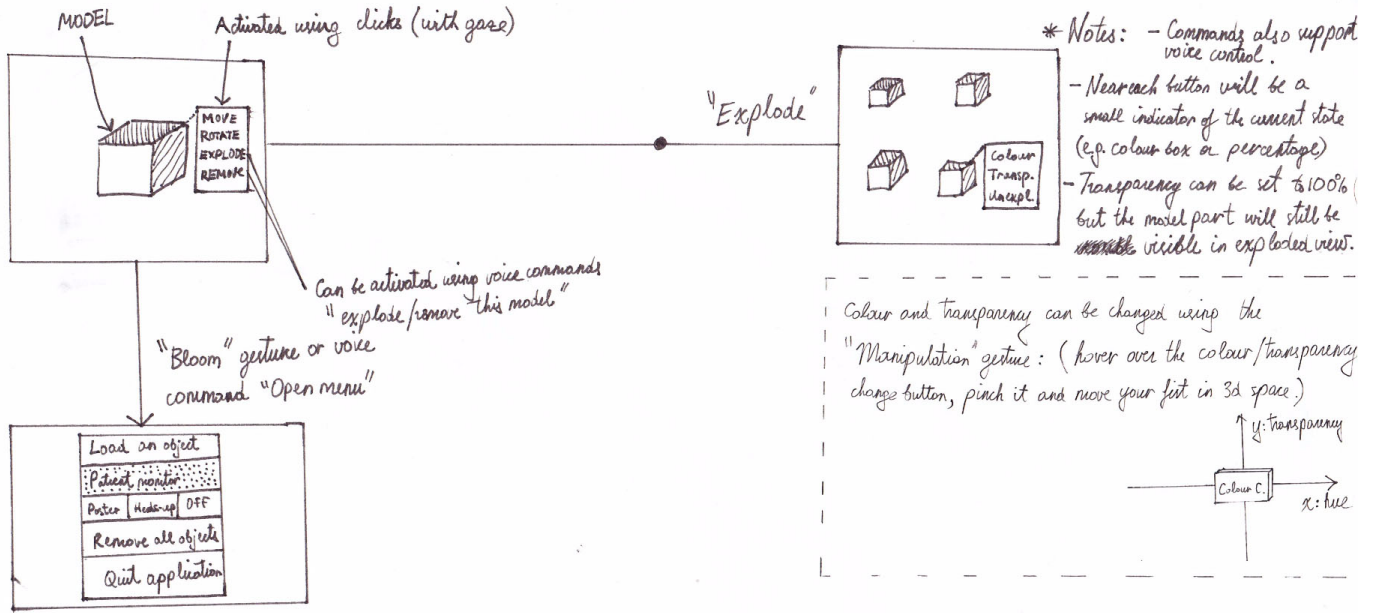 MODEL
Activated using clicks (with gaze)
MOVE
ROTATE
EXPLODE
REMOVE
Can be activated using voice commands
"explode/remove this model"
"Bloom" gesture or voice
command "Open menu"
Load an object
Patient monitor
Poster Heads-up OFF
Remove all objects
Quit application
"Explode"
Colour
Transp.
Unexpl.
* Notes: - Commands also support
voice control.
- Near each button will be a
small indicator of the current state
(e.g. colour box or percentage)
- Transparency can be set to 100%
but the model part will still be
visible in exploded view.
Colour and transparency can be changed using the
"Manipulation" gesture: (hover over the colour/transparency
change button, pinch it and move your fist in 3d space.)
y: transparency
Colour C.
x: hue